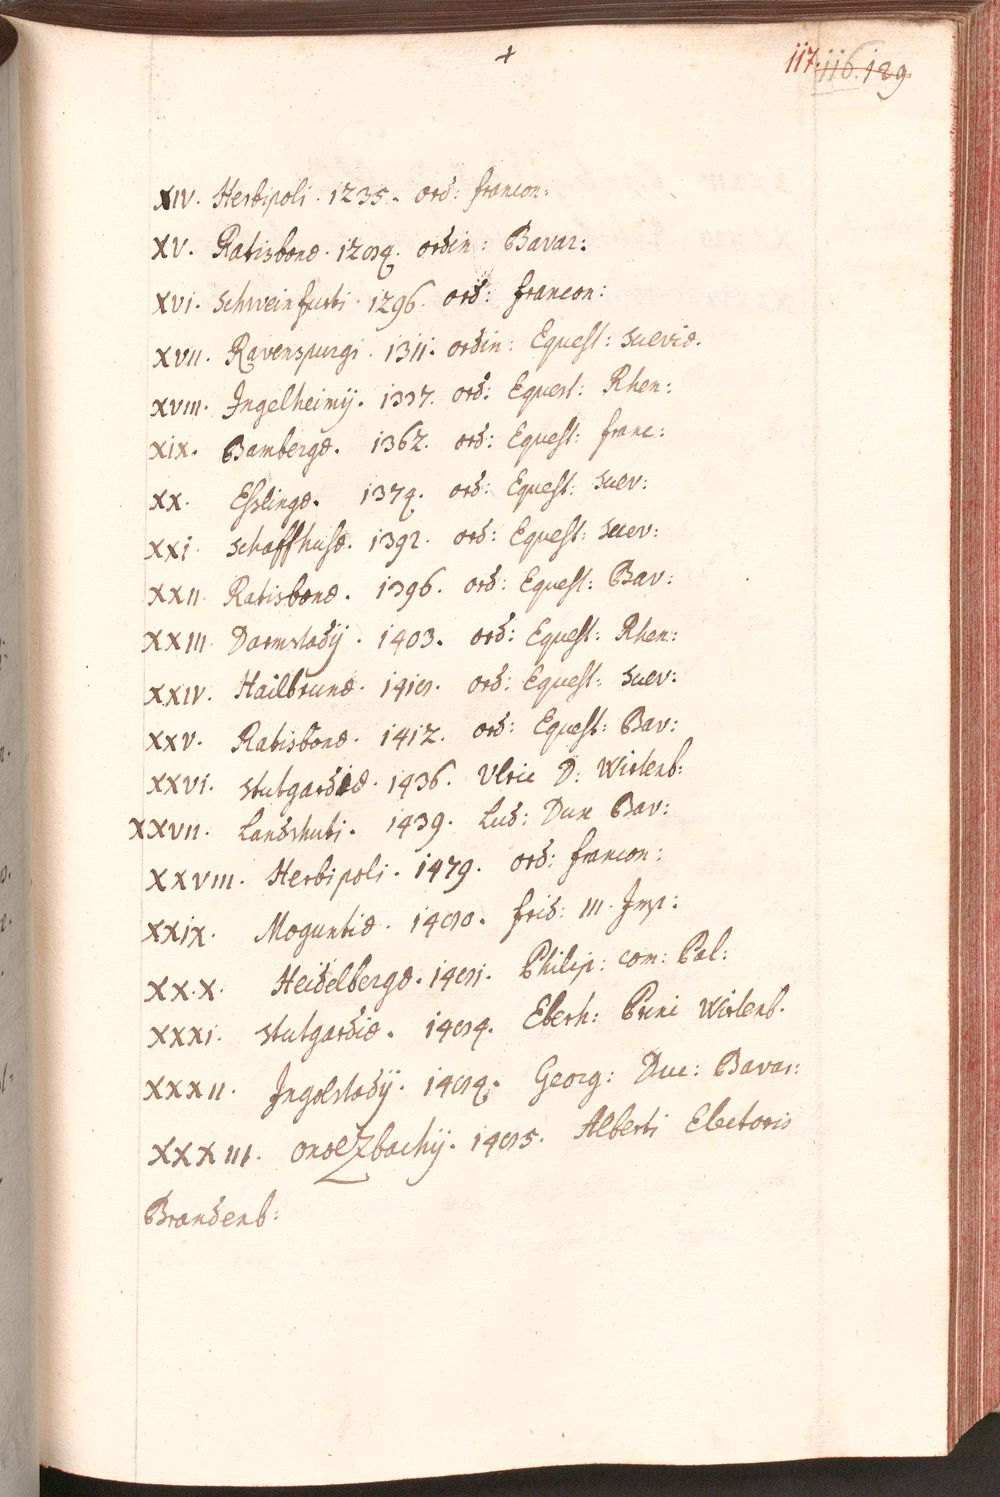 +
117. 116. 129
XIV. Herbipoli. 1235. ord: francon:
XV. Ratisbonæ. 1284. ordin: Bavar:
XVI. Schweinfurti. 1296. ord: francon:
XVII. Ravenspurgi. 1311. ordin: Equest: Sueviæ.
XVIII. Ingelheimij. 1337. ord: Equest: Rhen:
XIX. Bambergæ. 1362. ord: Equest: franc:
XX. Eslingæ. 1374. ord: Equest: Suev:
XXI. Schaffhusæ. 1392. ord: Equest: Suev:
XXII. Ratisbonæ. 1396. ord: Equest: Bav:
XXIII. Darmstadij. 1403. ord: Equest: Rhen:
XXIV. Hailbrunæ. 1408. ord: Equest: Suev:
XXV. Ratisbonæ. 1412. ord: Equest: Bav:
XXVI. Stutgardiæ. 1436. Ulric D: Wirtenb:
XXVII. Landshuti. 1439. Lud: Dux Bav:
XXVIII. Herbipoli. 1479. ord: francon:
XXIX. Moguntiæ. 1480. frid: III. Imp:
XXX. Heidelbergæ. 1481. Philip: com: Pal:
XXXI. Stutgardiæ. 1484. Eberh: Princ Wirtenb.
XXXII. Ingolstadij. 1484. Georg: Duc: Bavar:
XXXIII. Onolzbachij. 1485. Alberti Electoris
Brandenb: